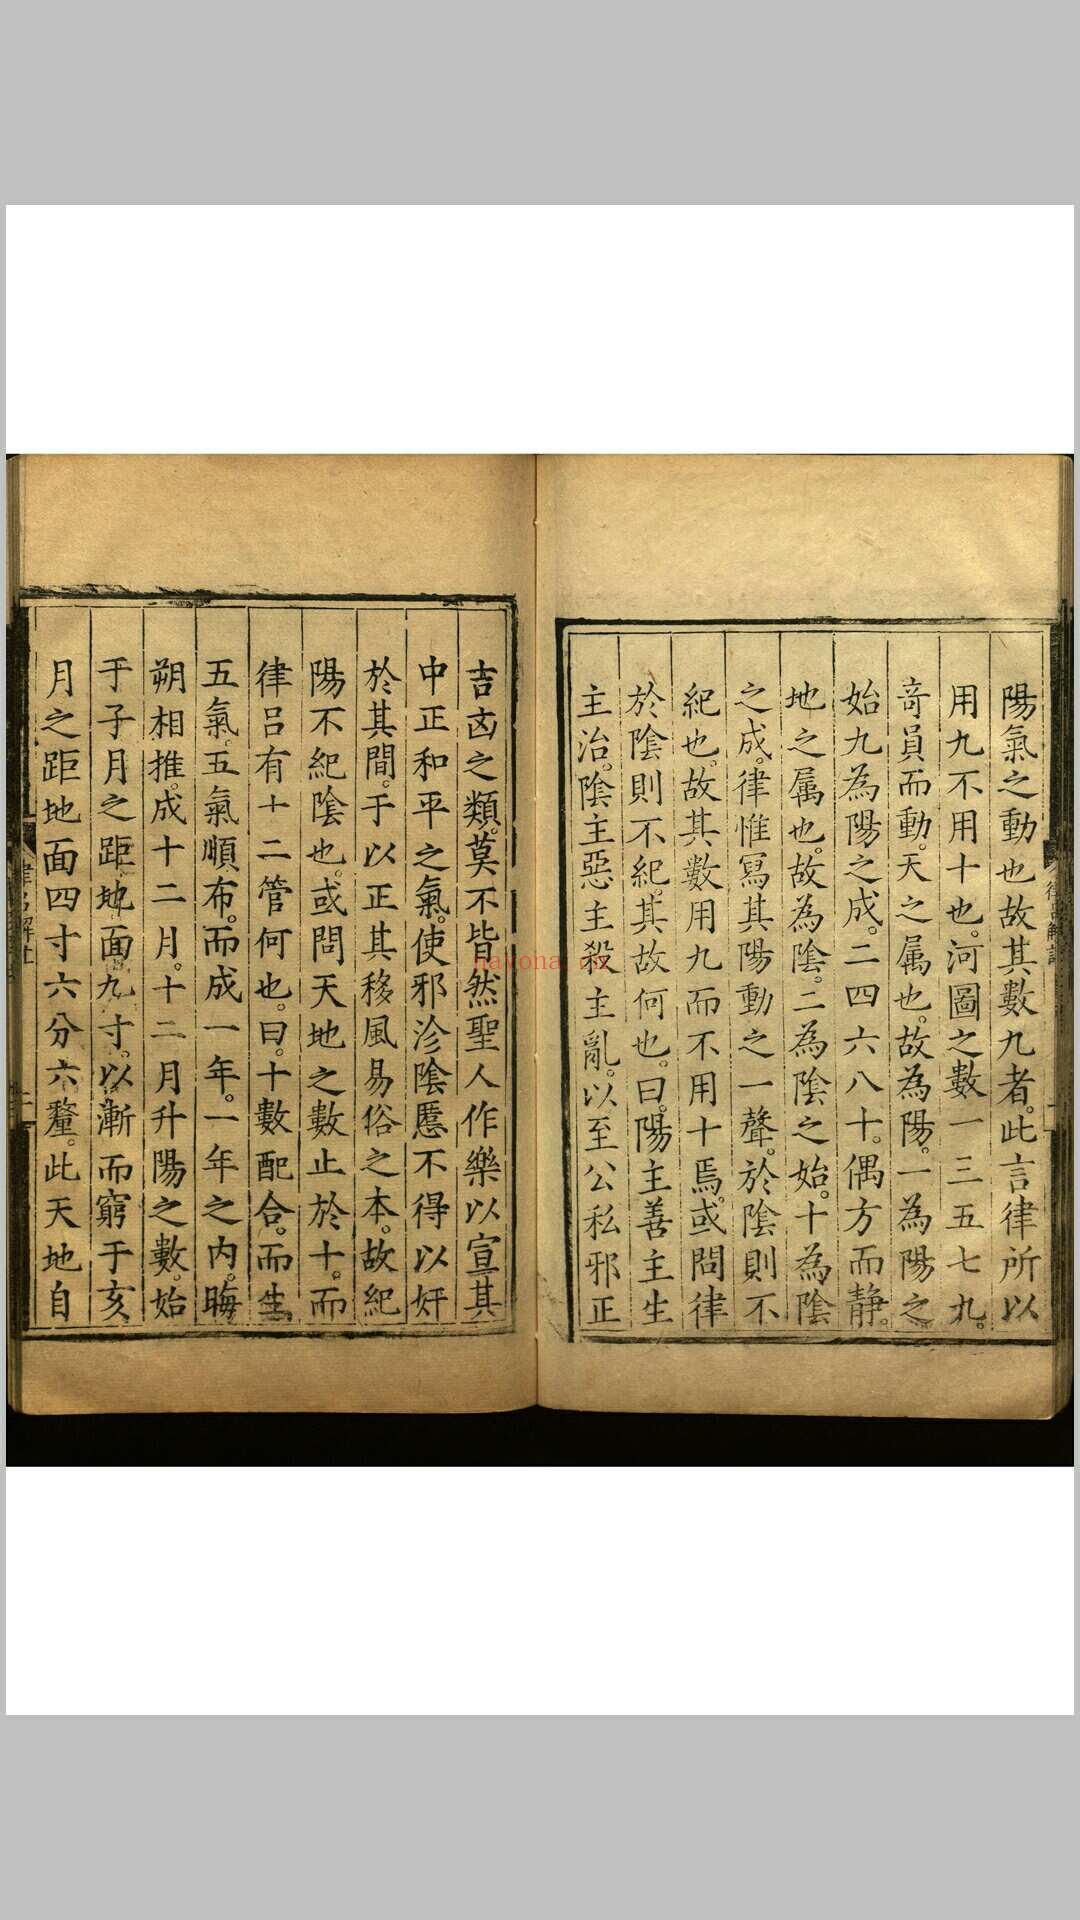 陽氣之動也故其數九者。此言律所以
用九不用十也。河圖之數一三五七九。
竒員而動。天之属也。故為陽。一為陽之
始九為陽之成。二四六八十。偶方而静。
地之属也。故為陰。二為陰之始。十為陰
之成。律惟寫其陽動之一聲。於陰則不
紀也。故其數用九而不用十焉。或問律
於陰則不紀。其故何也。曰。陽主善主生
主治。陰主惡主殺主亂。以至公私邪正
吉凶之類。莫不皆然聖人作樂以宣其
中正和平之氣。使邪沴陰慝不得以奸
於其間。于以正其移風易俗之本。故紀
陽不紀陰也。或問天地之數止於十。而
律呂有十二管何也。曰。十數配合。而生
五氣。五氣順布。而成一年。一年之内。晦
朔相推。成十二月。十二月升陽之數。始
于子月之距地面九寸。以漸而窮于亥
月之距地面四寸六分六釐。此天地自
nayona.cn